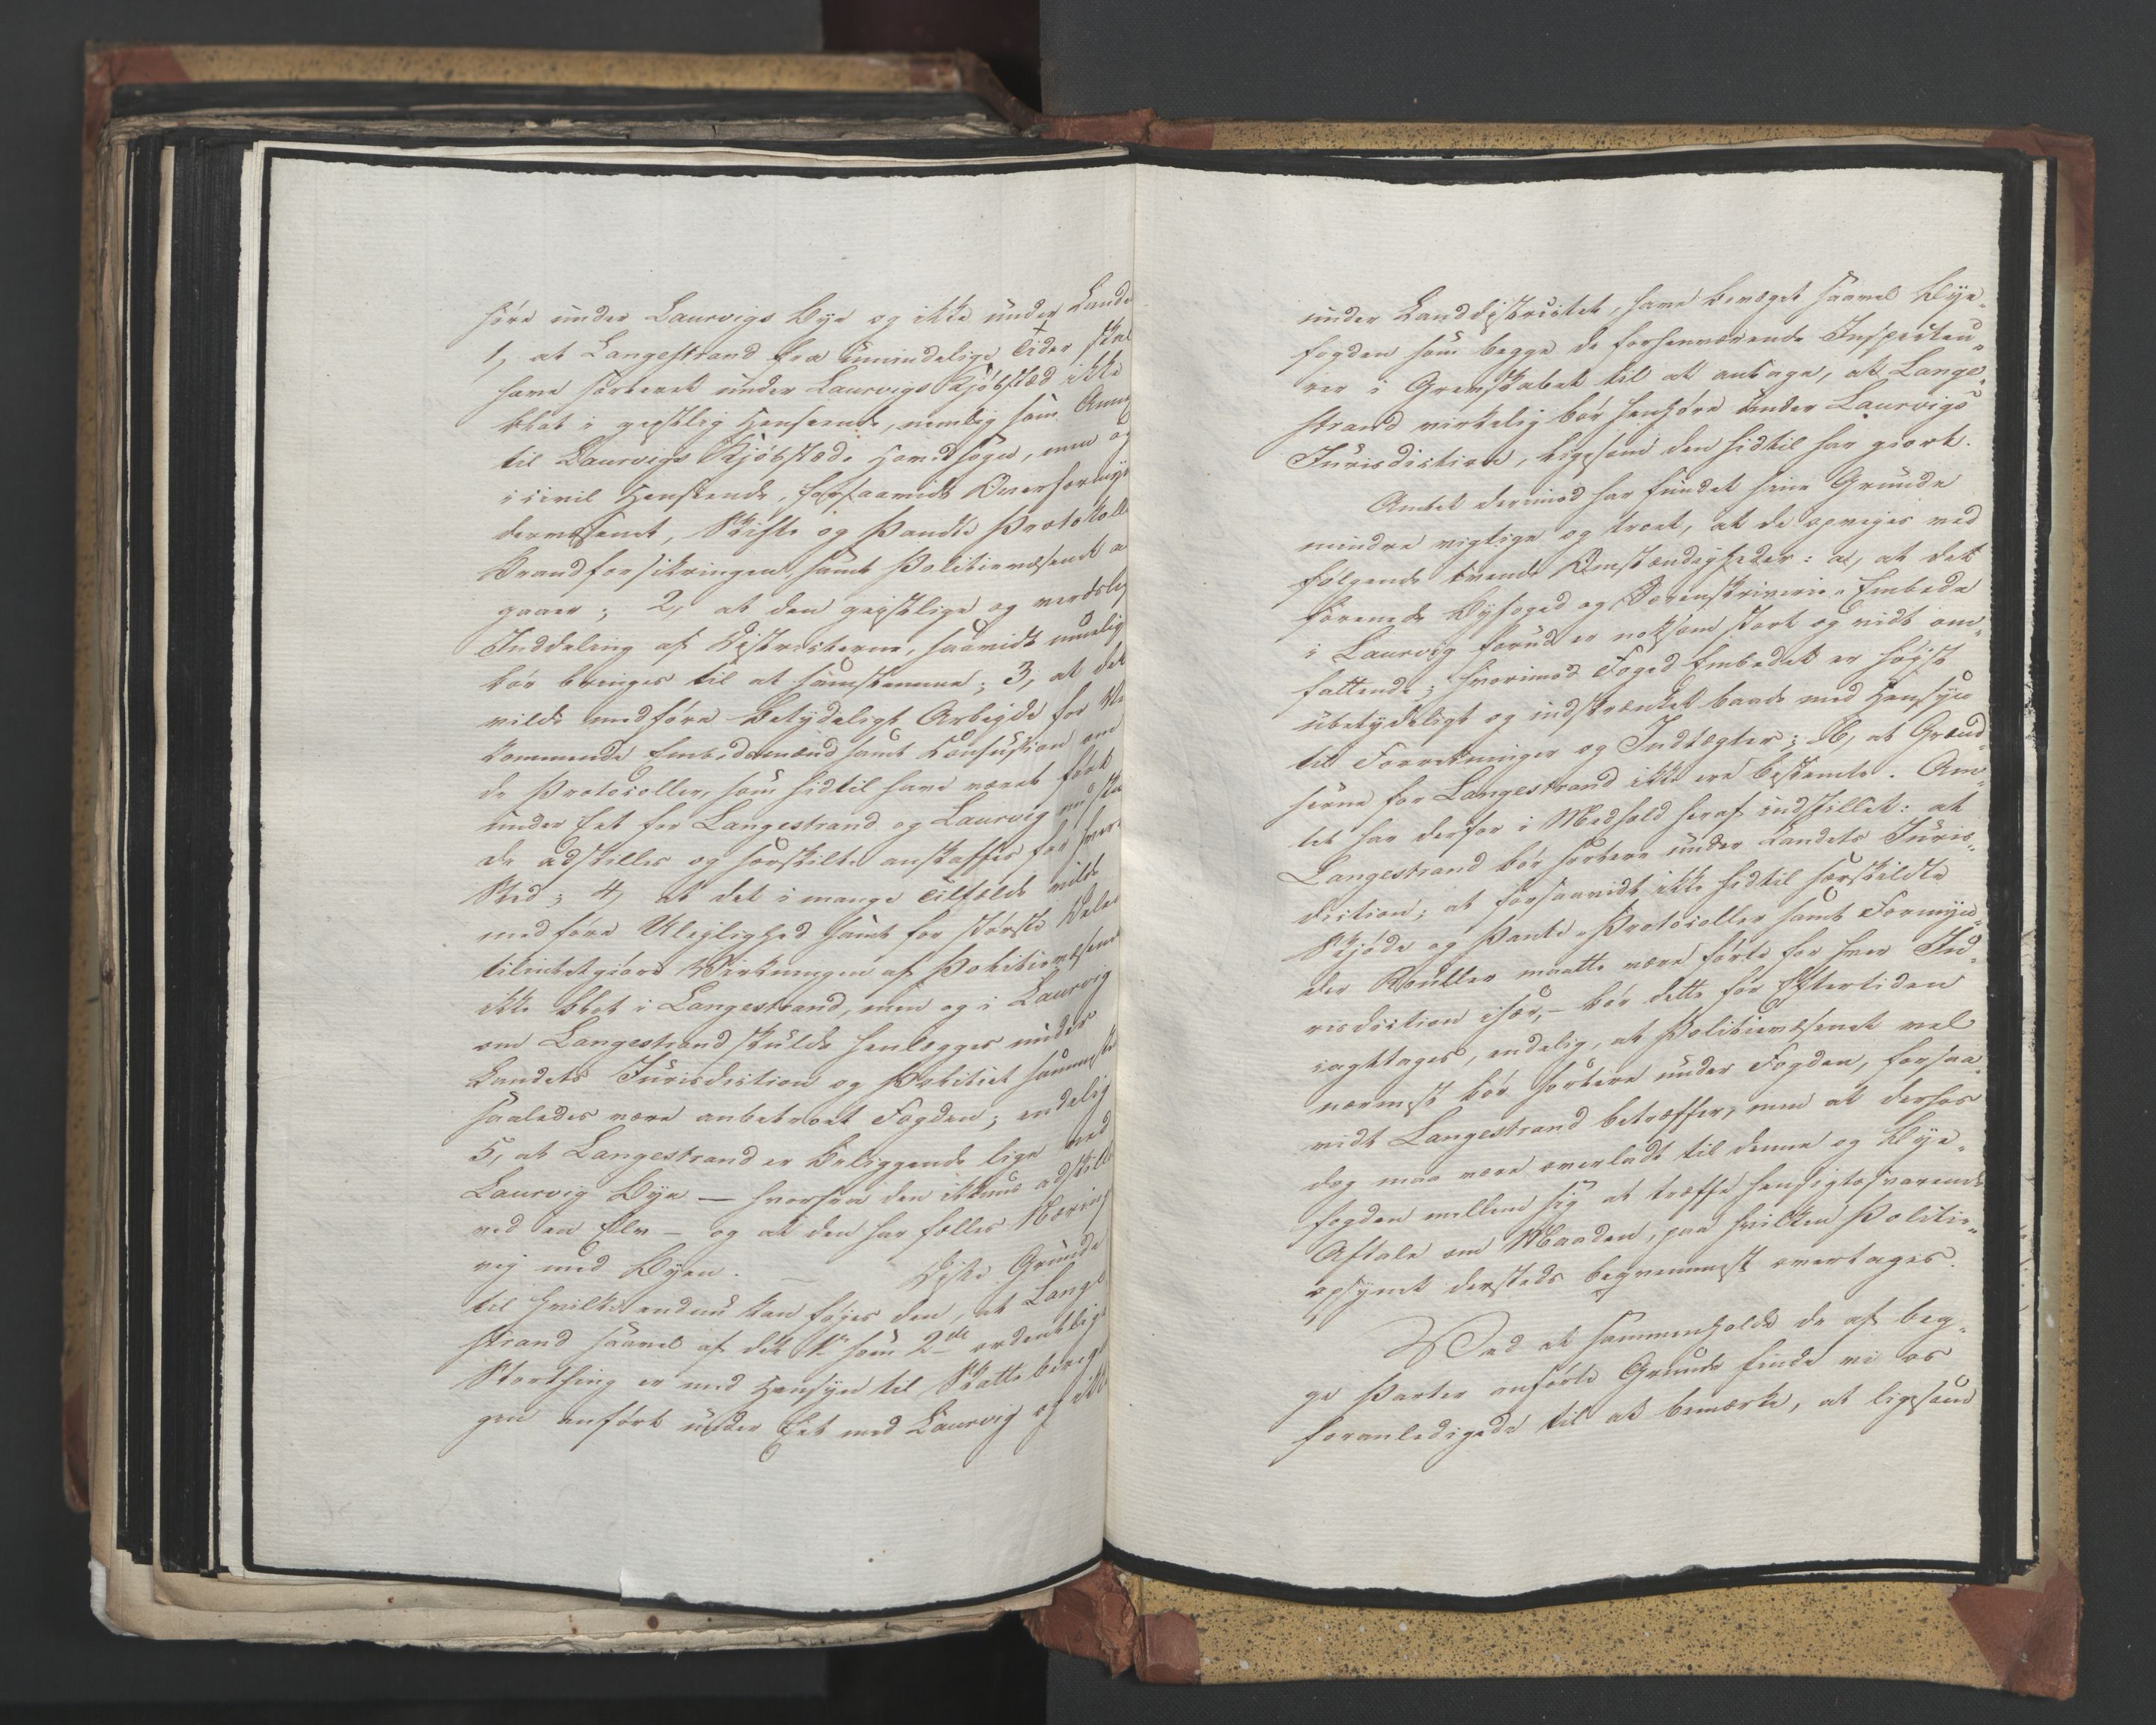 høre under Laurvigs Bye og ikke under Land
1, at Langestrand fra umindelige Tider skal
have sorteret under Laurvigs Kjøbstæd ikke
blot i geistlig Henseende, nemlig som Annex
til Laurvigs Kjøbstæds Hovedsogn, men og
i civil Henseende, forsaavidt Overformyn
dervæsenet, Skifte og Pante Protokolle
Brandforsikringen samt Politievæsenet a
gaaer; 2, at den geistlige og verdslig
Inddeling af Districterne, saavidt muelig
bør bringes til at samstemme; 3, at det
vilde medføre betydeligt Arbeide for Ve
kommende Embedsmænd samt Confusion om
de Protocoller, som hidtil have været ført
under Eet for Langestrand og Laurvig nu skul
de adskilles og særskilte anskaffes for hver
Sted; 4, at det i mange Tilfælde vilde
medføre Uleilighed samt for største Delen
tilintetgjøre Virkningen af Politievæsenet
ikke blot i Langestrand, men og i Laurvig
om Langestrand skulde henlægges under
Landets Jurisdiction og Politiet sammesteds
saaledes være anbetroet Fogden; endelig
5, at Langestrand er beliggende lige ved
Laurvig Bye — hvorfra den ikkuns adskille
ved en Elv — og at den har fælles Næring
vej med Byen. — Disse Grunde
til hvilke endnu kan føjes den, at Lange
strand saavel af det 1ste som 2det ordentlige
Storthing er med Hensyn til Skatteberegnin
gen anført under Eet med Laurvig og ikke
under Landdistrictet, have bevæget saavel Bye-
fogden som begge de forhenværende Inspecteu-
rer i Grevskabet til at antage, at Lange-
strand virkelig bør henhøre under Laurvigs
Jurisdiction, ligesom den hidtil har giort.
Amtet derimod har fundet hine Grunde
mindre vigtige og troet, at de opveies ved
følgende tvende Omstændigheder: a, at det
forenede Byfoged og Sorenskriverie-Embede
i Laurvig forud er noksom stort og vidt om-
fattende; hvorimod Foged Embedet er høist
ubetydeligt og indskrænket baade med Hensyn
til Forretninger og Indtægter; b, at Grænd-
serne for Langestrand ikke ere bestemte. Am-
tet har derfor i Medhold heraf indstillet: at
Langestrand bør sortere under Landets Juris-
diction; at forsaavidt ikke hidtil særskildte
Skjøde og Pante-Protocoller samt Formyn-
der Rouller maatte være førte for hver Ju-
risdiction især, — bør dette for Eftertiden
iagttages, endelig, at Politievæsenet vel
nærmest bør sortere under Fogden, forsaa-
vidt Langestrand betræffer, men at derhos
dog maa være overladt til denne og Bye-
fogden mellem sig at træffe hensigtssvarende
Aftale om Maaden, paa hvilken Politie-
opsynet dersteds beqvemmest overtages.
Ved at sammenholde de af beg-
ge Parter anførte Grunde finde vi os
foranledigede til at bemærke, at ligesom